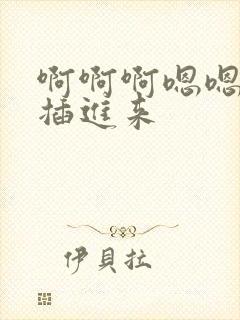 啊啊啊嗯嗯
插進来
伊貝拉